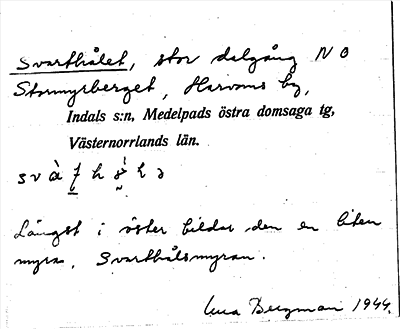 Svarthålet, stor dalgång N O
Stormyrberget, Harvoms by,
Indals s:n, Medelpads östra domsaga tg,
Västernorrlands län.
Längst i öster bildar den en liten
myra, Svarthålsmyran.
Bergman 1944.